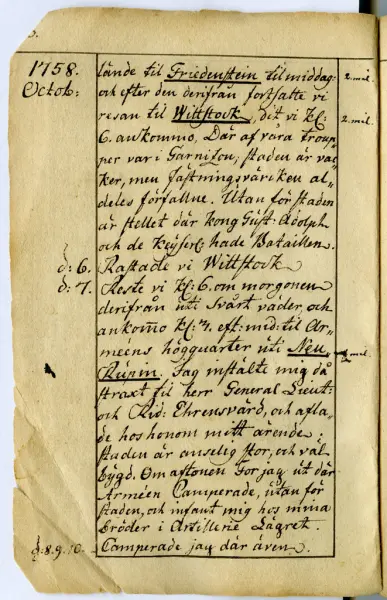 5.
1758. lände til Friedenstein til middag: 2. mil.
Octob: och efter den derifrån fortsatte vi
resan til Wittstock, dit vi kl: 2. mil.
6. ankommo. Där af våra troup-
per var i Garnison, staden är vac-
ker, men fästningsvärcken al-
deles förfallne. Utanför staden
är stellet där kong Gust: Adolph
och de Keyserl: hade Bataillen.
d: 6. Rastade vi Wittstock
d: 7. Reste vi kl: 6. om morgonen
derifrån uti svårt väder, och
ankomo kl: 7. eft: mid: til Ar-
méens högquarter uti Neu mil.
Rupin. Jag instälte mig då
straxt til herr General Lieut:
och Rid: Ehrensvärd, och afla-
de hos honom mitt ärende.
staden är enselig stor, och väl
bygd. Om aftonen for jag ut där
Arméen Camperade, utan för
staden, och infant mig hos mina
Bröder i Artillerie Lägret.
d: 8. 9. 10. Camperade jag där även.